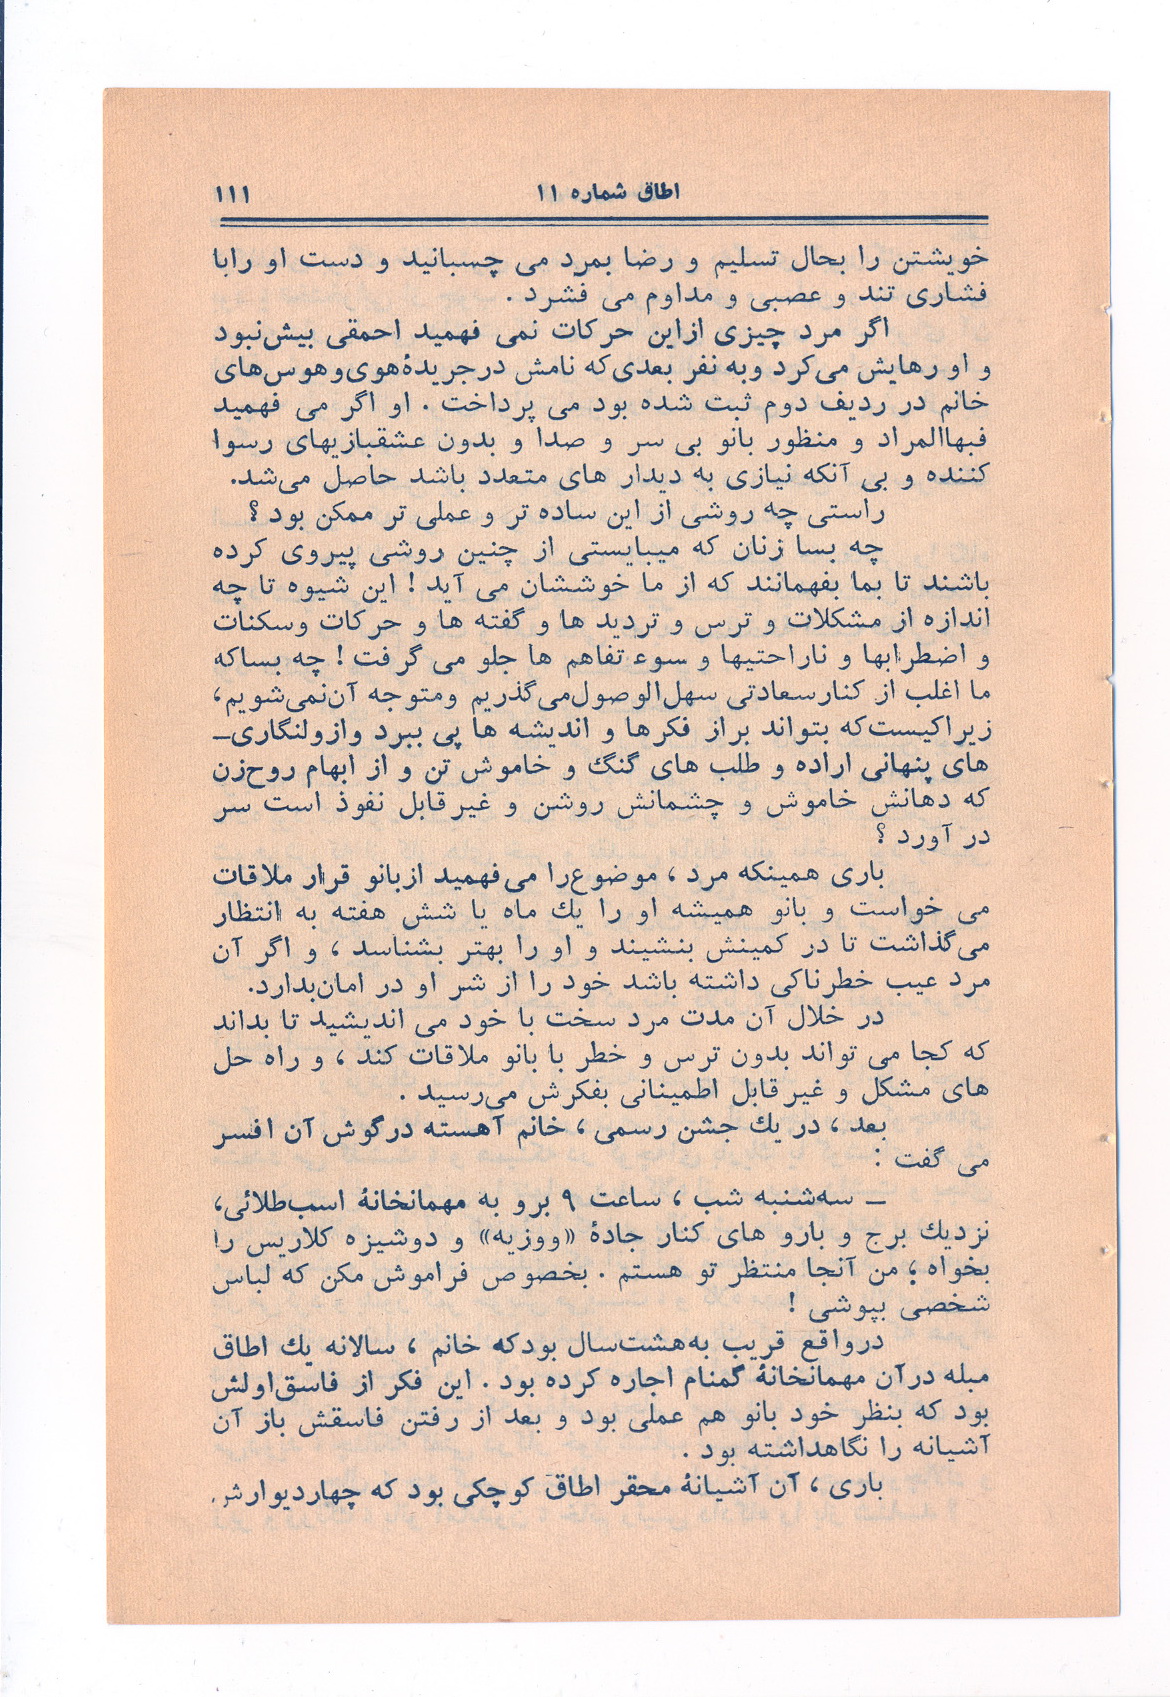 اطاق شماره ۱۱
۱۱۱
خویشتن را بحال تسلیم و رضا بمرد می چسبانید و دست او رابا
فشاری تند و عصبی و مداوم می فشرد .
اگر مرد چیزی ازاین حرکات نمی فهمید احمقی بیش‌نبود
و او رهایش می‌کرد وبه نفر بعدی‌که نامش درجریدهٔ‌هوی‌وهوس‌های
خانم در ردیف دوم ثبت شده بود می پرداخت . او اگر می فهمید
فبهاالمراد و منظور بانو بی سر و صدا و بدون عشقبازیهای رسوا
کننده و بی آنکه نیازی به دیدار های متعدد باشد حاصل می‌شد.
راستی چه روشی از این ساده تر و عملی تر ممکن بود ؟
چه بسا زنان که میبایستی از چنین روشی پیروی کرده
باشند تا بما بفهمانند که از ما خوششان می آید ! این شیوه تا چه
اندازه از مشکلات و ترس و تردید ها و گفته ها و حرکات وسکنات
و اضطرابها و ناراحتیها و سوء تفاهم ها جلو می گرفت ! چه بساکه
ما اغلب از کنارسعادتی سهل‌الوصول‌می‌گذریم ومتوجه آن‌نمی‌شویم،
زیراکیست‌که بتواند براز فکرها و اندیشه ها پی ببرد وازولنگاری_
های پنهانی اراده و طلب های گنگ و خاموش تن و از ابهام روح‌زن
که دهانش خاموش و چشمانش روشن و غیرقابل نفوذ است سر
در آورد ؟
باری همینکه مرد ، موضوع‌را می‌فهمید ازبانو قرار ملاقات
می خواست و بانو همیشه او را یك ماه یا شش هفته به انتظار
می‌گذاشت تا در کمینش بنشیند و او را بهتر بشناسد ، و اگر آن
مرد عیب خطرناکی داشته باشد خود را از شر او در امان‌بدارد.
در خلال آن مدت مرد سخت با خود می اندیشید تا بداند
که کجا می تواند بدون ترس و خطر با بانو ملاقات کند ، و راه حل
های مشکل و غیر قابل اطمینانی بفکرش می‌رسید .
بعد ، در یك جشن رسمی ، خانم آهسته درگوش آن افسر
می گفت :
_ سه‌شنبه شب ، ساعت ۹ برو به مهمانخانهٔ اسب‌طلائی،
نزدیك برج و بارو های کنار جادهٔ «ووزیه» و دوشیزه کلاریس را
بخواه ؛ من آنجا منتظر تو هستم . بخصوص فراموش مکن که لباس
شخصی بپوشی !
درواقع قریب به‌هشت‌سال بودکه خانم ، سالانه یك اطاق
مبله درآن مهمانخانهٔ گمنام اجاره کرده بود . این فکر از فاسق‌اولش
بود که بنظر خود بانو هم عملی بود و بعد از رفتن فاسقش باز آن
آشیانه را نگاهداشته بود .
باری ، آن آشیانهٔ محقر اطاق کوچکی بود که چهاردیوارش